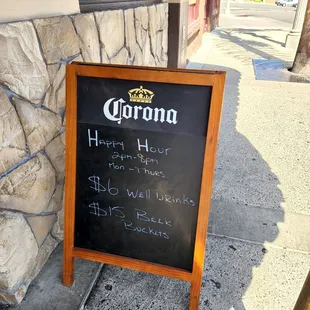 Corona
Happy Hour
2pm-6pm
Mon-Thurs
$6 Well Drinks
$15 Beer
Buckets